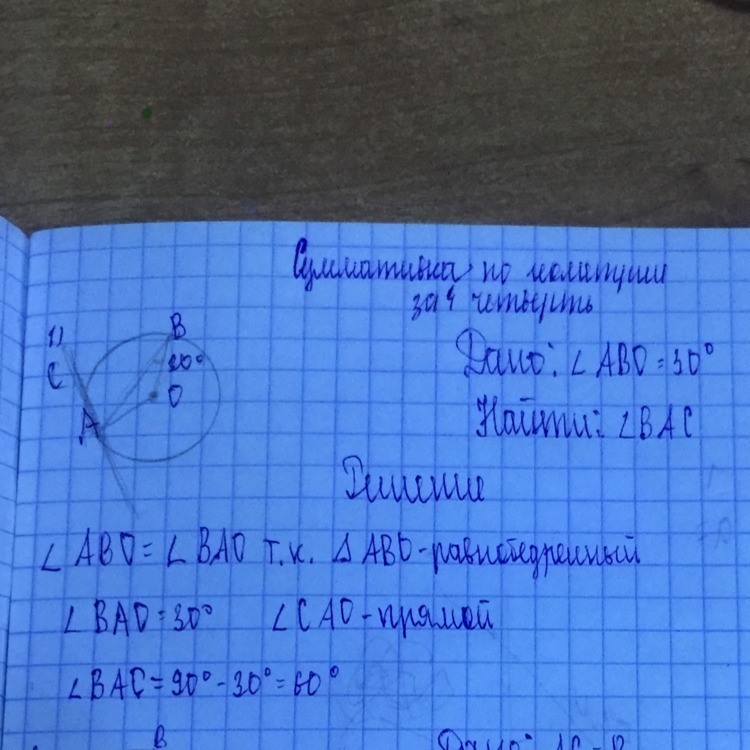 Суммативка по геометрии
за 4 четверть
1)
B
C
20°
O
A
Дано: ∠ABO = 30°
Найти: ∠BAC
Решение
∠ABO = ∠BAO т.к. △ABO - равнобедренный
∠BAO = 30° ∠CAO - прямой
∠BAC = 90° - 30° = 60°
B
Дано: